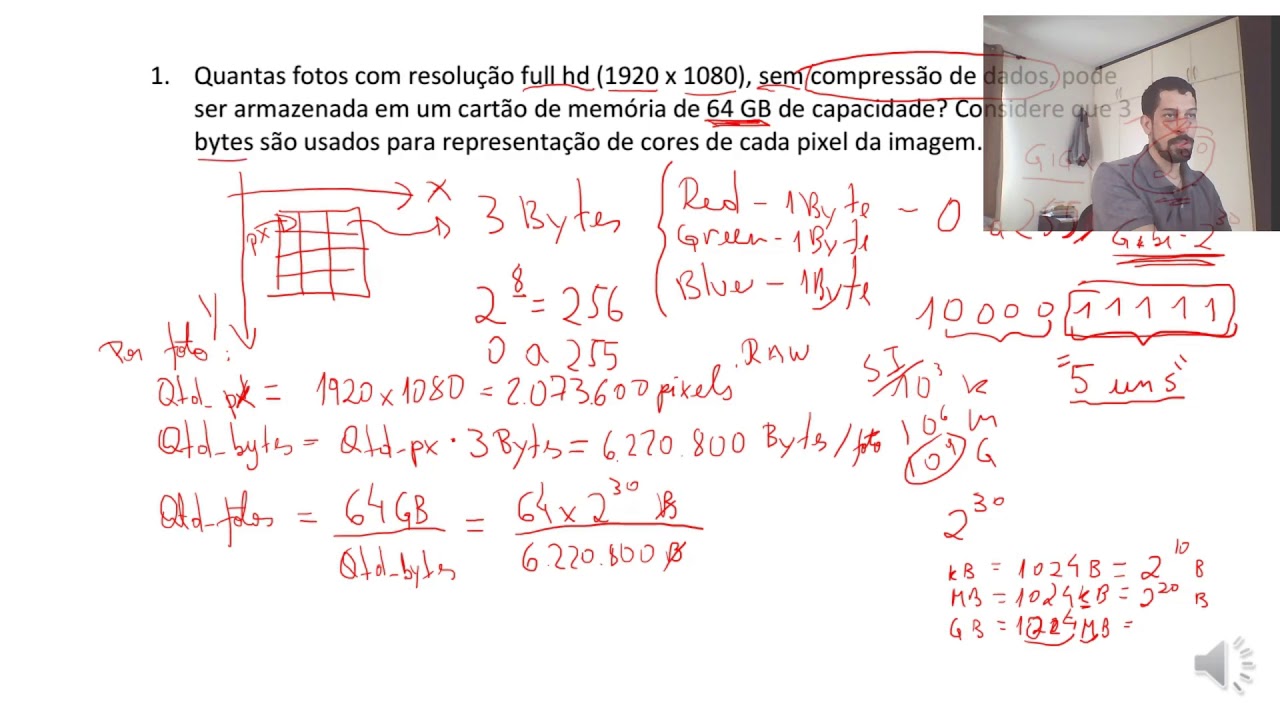 1. Quantas fotos com resolução full hd (1920 x 1080), sem compressão de dados, pode
ser armazenada em um cartão de memória de 64 GB de capacidade? Considere que 3
bytes são usados para representação de cores de cada pixel da imagem.
X
px
Y
3 Bytes
Red - 1Byte - 0 a 255
Green - 1Byte
Blue - 1Byte
2^8 = 256
0 a 255
10000 11111
"5 uns"
Por foto:
RAW
Qtd_px = 1920x1080 = 2.073.600 pixels
Qtd_bytes = Qtd_px · 3 Bytes = 6.220.800 Bytes/foto
SI
10^3 k
10^6 M
10^9 G
Qtd_fotos = 64GB / Qtd_bytes = 64 x 2^30 B / 6.220.800 B
2^30
kB = 1024B = 2^10 B
MB = 1024kB = 2^20 B
GB = 1024MB =